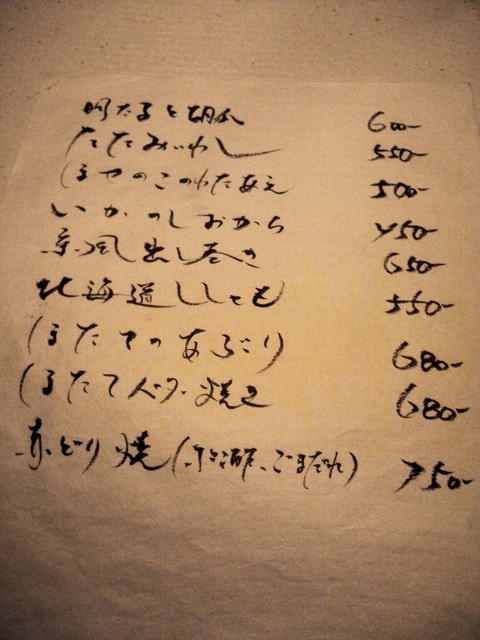 明太子と胡瓜 600-
たたみいわし 550-
ほやのこのわたあえ 500-
いかのしおから 450-
京風出し巻き 650-
北海道ししゃも 550-
ほたてのあぶり 680-
ほたてバター焼き 680-
赤どり焼(ごまだれ) 750-